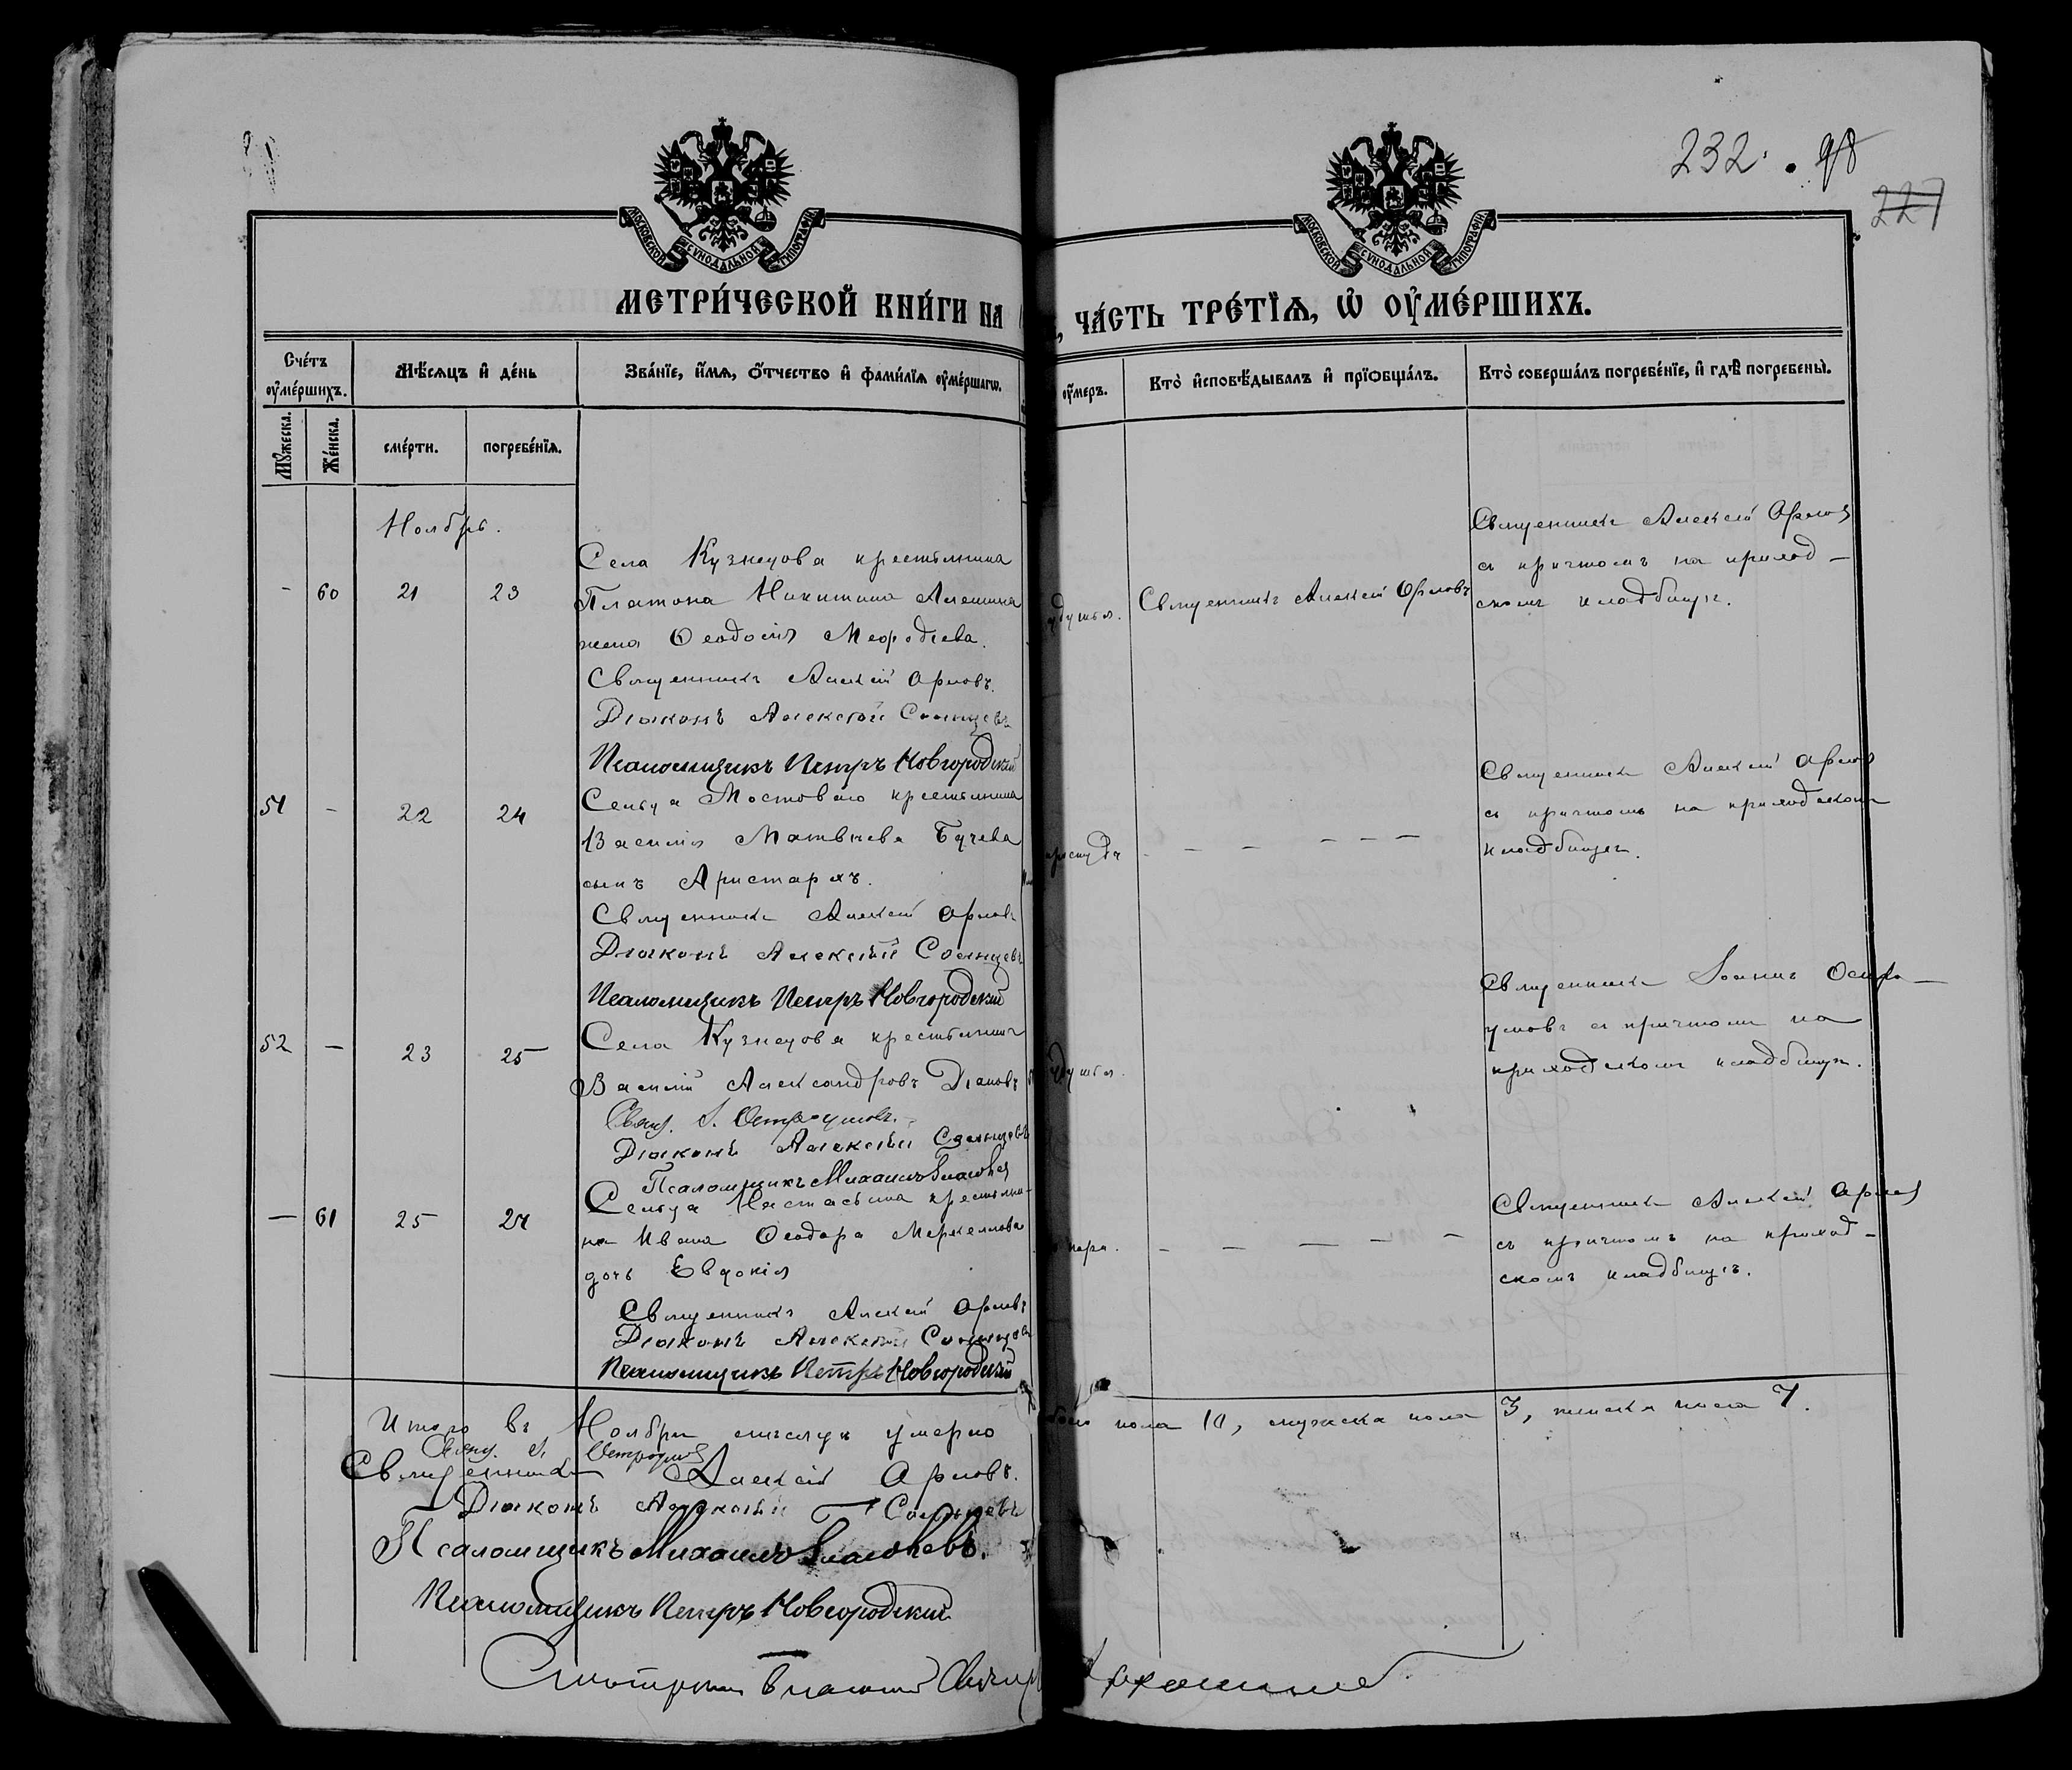 232. 98
227
МОСКОВСКОЙ СѴНОДАЛЬНОЙ ТИПОГРАФІИ
МОСКОВСКОЙ СѴНОДАЛЬНОЙ ТИПОГРАФІИ
МЕТРИ́ЧЕСКОЙ КНИ́ГИ НА
, ЧА́СТЬ ТРЕ́ТЇѦ, Ѡ҆ ОУ҆МЕ́РШИХЪ.
Счéтъ оу҆мéршихъ.
Мѣ́сѧцъ и҆ дéнь
Звáнїе, и҆́мѧ, ѻ҆́тчество и҆ фамѝлїѧ оу҆мéршагѡ.
оу҆́меръ.
Ктò и҆сповѣ́дывалъ и҆ прїѻбщáлъ.
Ктò совершáлъ погребéнїе, и҆ гдѣ̀ погребены̀.
Мꙋ́жеска.
Жéнска.
смéрти.
погребéнїѧ.
Ноябрь.
- 60 21 23
Села Кузнецова крестьянина
Платона Никитина Алешина
жена Ѳеодосія Меѳодіева.
Священникъ Алексій Орловъ.
Діаконъ Алексѣй Солнцевъ
Псаломщикъ Петръ Новгородскій
Священникъ Алексій Орловъ
Священникъ Алексій Орловъ
съ причтомъ на приход-
скомъ кладбищѣ.
51 - 22 24
Сельца Мостоваго крестьянина
Василія Матвѣева Бучева
сынъ Аристархъ.
Священникъ Алексій Орловъ
Діаконъ Алексѣй Солнцевъ
Псаломщикъ Петръ Новгородскій
- - - - - -
Священникъ Алексій Орловъ
съ причтомъ на приходскомъ
кладбищѣ.
52 - 23 25
Села Кузнецова крестьянинъ
Василій Александровъ Діановъ
Свящ. І. Остроумовъ.
Діаконъ Алексѣй Солнцевъ
Псаломщикъ Михаилъ
Священникъ Іоаннъ Остро-
умовъ съ причтомъ на
приходскомъ кладбищѣ.
- 61 25 27
Сельца Настасьина крестьяни-
на Ивана Ѳеодора Меркелова
дочь Евдокія
Священникъ Алексій Орловъ
Діаконъ Алексѣй Солнцевъ
Псаломщикъ Петръ Новгородскій
- - - - -
Священникъ Алексій Орловъ
съ причтомъ на приход-
скомъ кладбищѣ.
Итого въ Ноябрѣ мѣсяцѣ умерло
пола 10, мужеска пола 3, женска пола 7.
Свящ. І. Остроумовъ
Священникъ Алексій Орловъ.
Діаконъ Алексѣй Солнцевъ
Псаломщикъ Михаилъ
Псаломщикъ Петръ Новгородскій